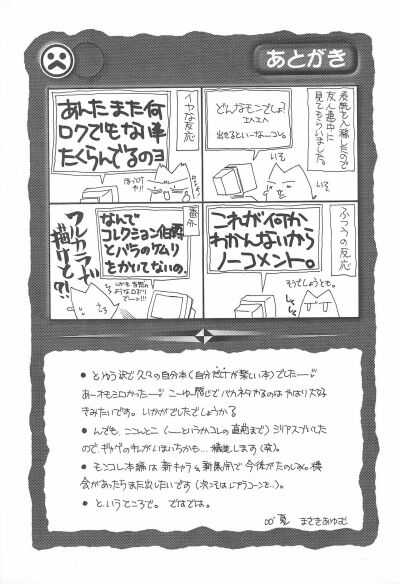 あとがき
原稿も入稿したので
友人連中に
見てもらいました。
どんなモンでしょ?
エヘエヘ
出せるといーな―コレ。
いそ
イヤな反応
あんたまた何
ロクでもない事
たくらんでるのヨ
ふつうの反応
これが何か
わかんないから
ノーコメント。
そうでしょうとも。
番外
なんで
コレクション伯爵
とバラのケムリ
をかいてないの。
フルカラーで
描けと?!
● とゆう訳で久々の自分本(自分だけが楽しい本)でした―
あーオモシロかったー こーゆー感じでバカネタやるのはやはり大好
きみたいです。いかがでしたでしょうか
● んでも、ここんとこ(―というかコレの直前まで)シリアスづいてた
ので ギャグのキレがいまいちかも… 精進します(笑)。
● モンコレ本編は新キャラ&新展開で今後がたのしみ。機
会があったらまた出したいです(次こそはレプラコーンを…)。
● というところで。ではでは。
00'夏 まさきあゆむ